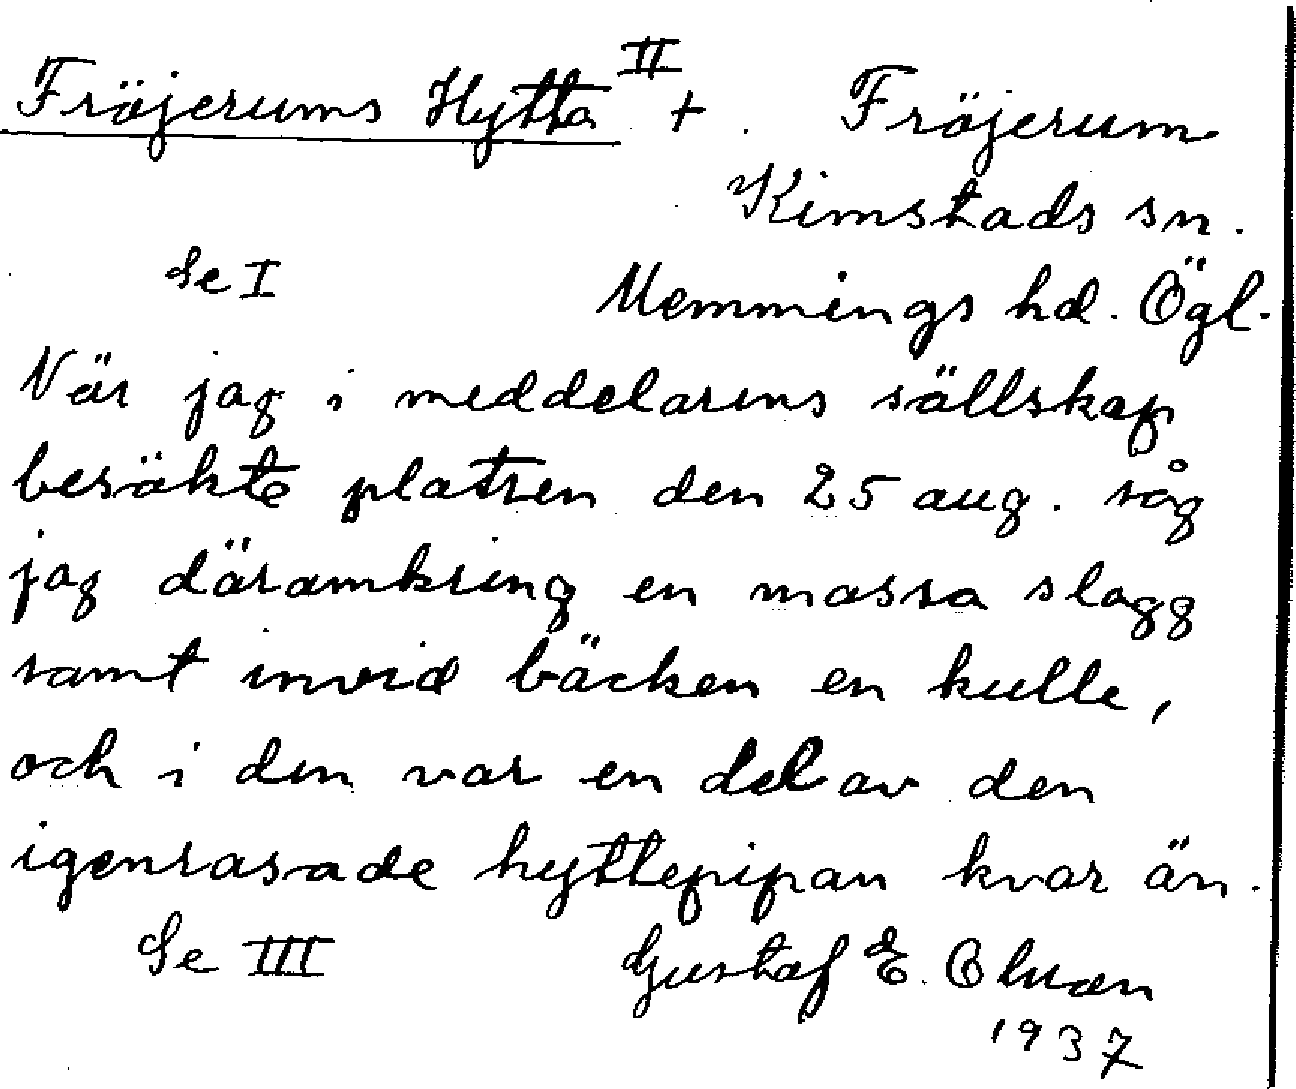 Fröjerums Hytta II + Fröjerum
Kimstads sn.
Se I Memmings hd. Ögl.
När jag i meddelarens sällskap
besökte platsen den 25 aug. såg
jag däromkring en massa slagg
samt invid bäcken en kulle,
och i den var en del av den
igenrasade hyttepipan kvar än.
Se III Gustaf E. Olman
1937